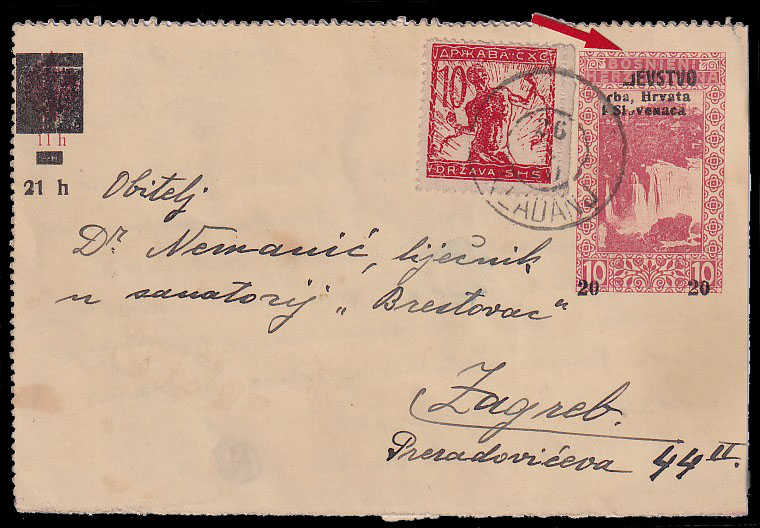 ДРЖАВА·СХС
10
DRŽAVA SHS
BOSNIEN-
HERZEGOWINA
JEVSTVO
rba, Hrvata
i Slovenaca
10 10
20 20
11 h
21 h
Obitelj
Dr Nemanić, liječnik
u sanatorij „Brestovac“
Zagreb.
Preradovićeva 44 II.